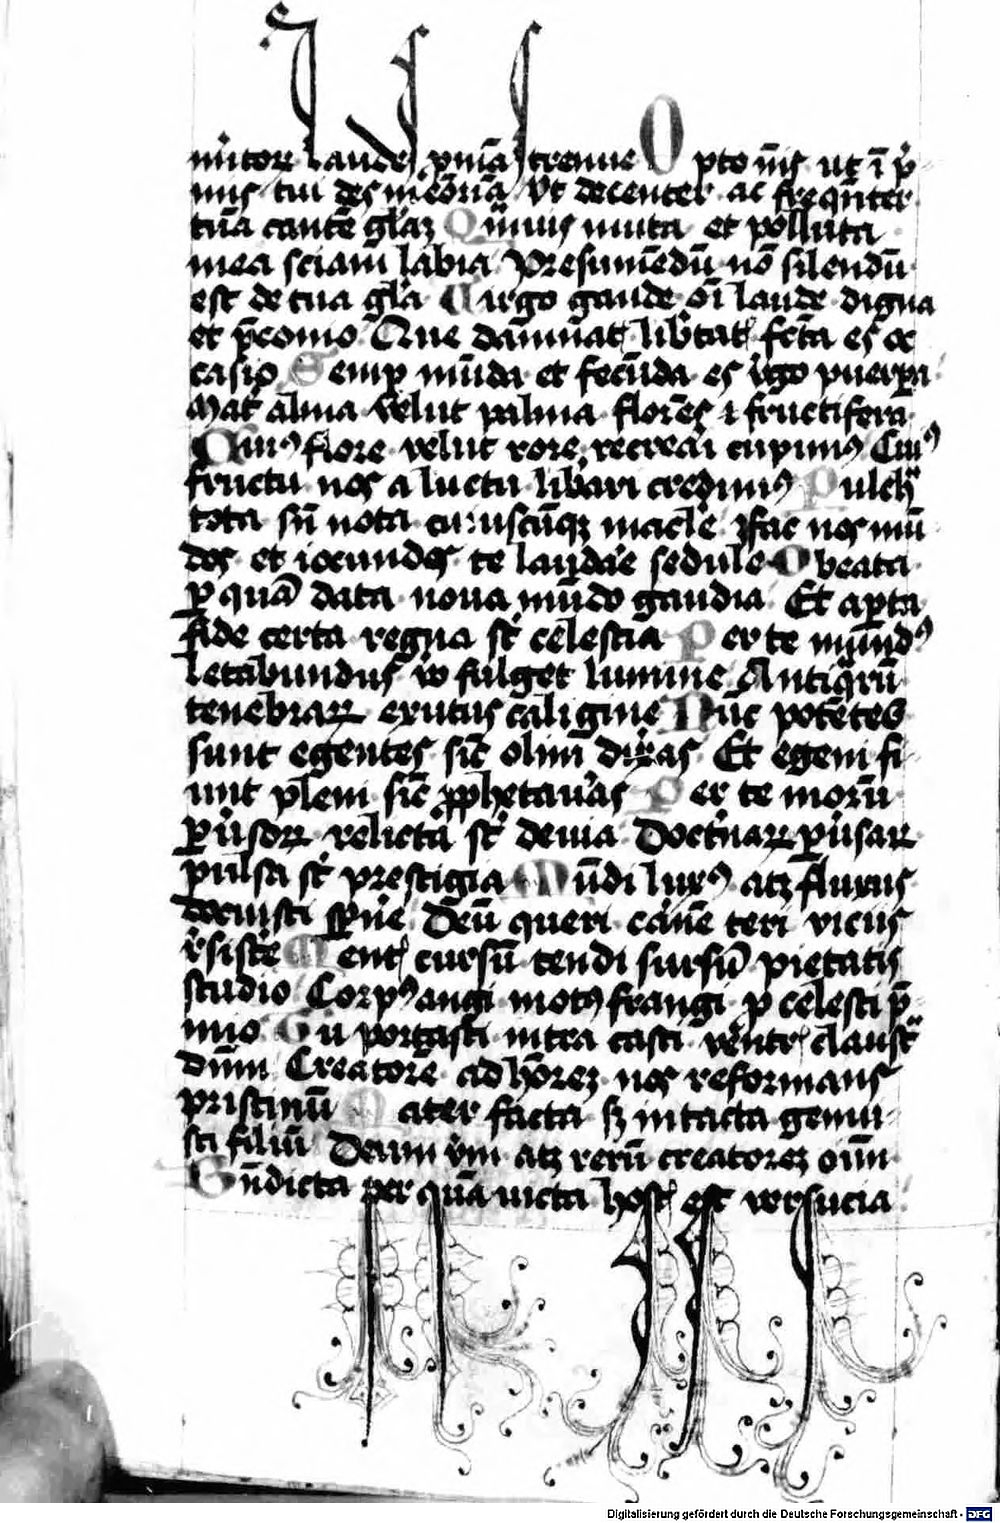 nitor laude p̄mia strenue Opto nīs ut ī p̄
mis tui des memoria Ut decenter ac freqūter
tuā cantē gl̄aꝫ Quīuis muta et polluta
mea sciam labia Presumēdū nō silendū
est de tua gl̄a Uirgo gaude oī laude digna
et p̄conio Que dāmnat libtat fcā es oc
casio Semp mūda et fecūda es ůgo puerpa
Mat alma velut palma flores ⁊ fructifera
Cuiꝰ flore velut rore recreari cupimꝰ Cuiꝰ
fructu nos a luctu libari credimꝰ Pulch
tota sn̄ nota cuiuscūqꝫ macle ⁊fac nos mū
dos et iocundos te laudae sedule O beata
p quā data noua mūdo gaudia Et apta
fide certa regna st celestia Per te mundꝰ
letabundus no fulget lumine Antiqrū
tenebraꝝ exutus caligine Nūc potētes
sunt egentes sic olim dixas Et egeni fi
unt pleni sic ꝓphetauas Per te morū
puisoꝝ relicta st deuia Doctnaꝝ puisaꝝ
pulsa st prestigia Mūdi luxꝰ atꝫ fluxus
docuisti spne Deū queri carnē teri viciis
rsiste Ment cursū tendi sursū pietatis
studio Corpꝰ angi motꝰ frangi p celesti p̄
mio Tu portasti intra casti ventr claust
dūm Creatorē ad hōreꝫ nos reformans
pristinū Mater facta sꝫ intacta genui
sti filiū Deum vm atꝫ rerū creatoreꝫ oīm
Bn̄dicta per quā uicta host est versucia
Digitalisierung gefördert durch die Deutsche Forschungsgemeinschaft - DFG